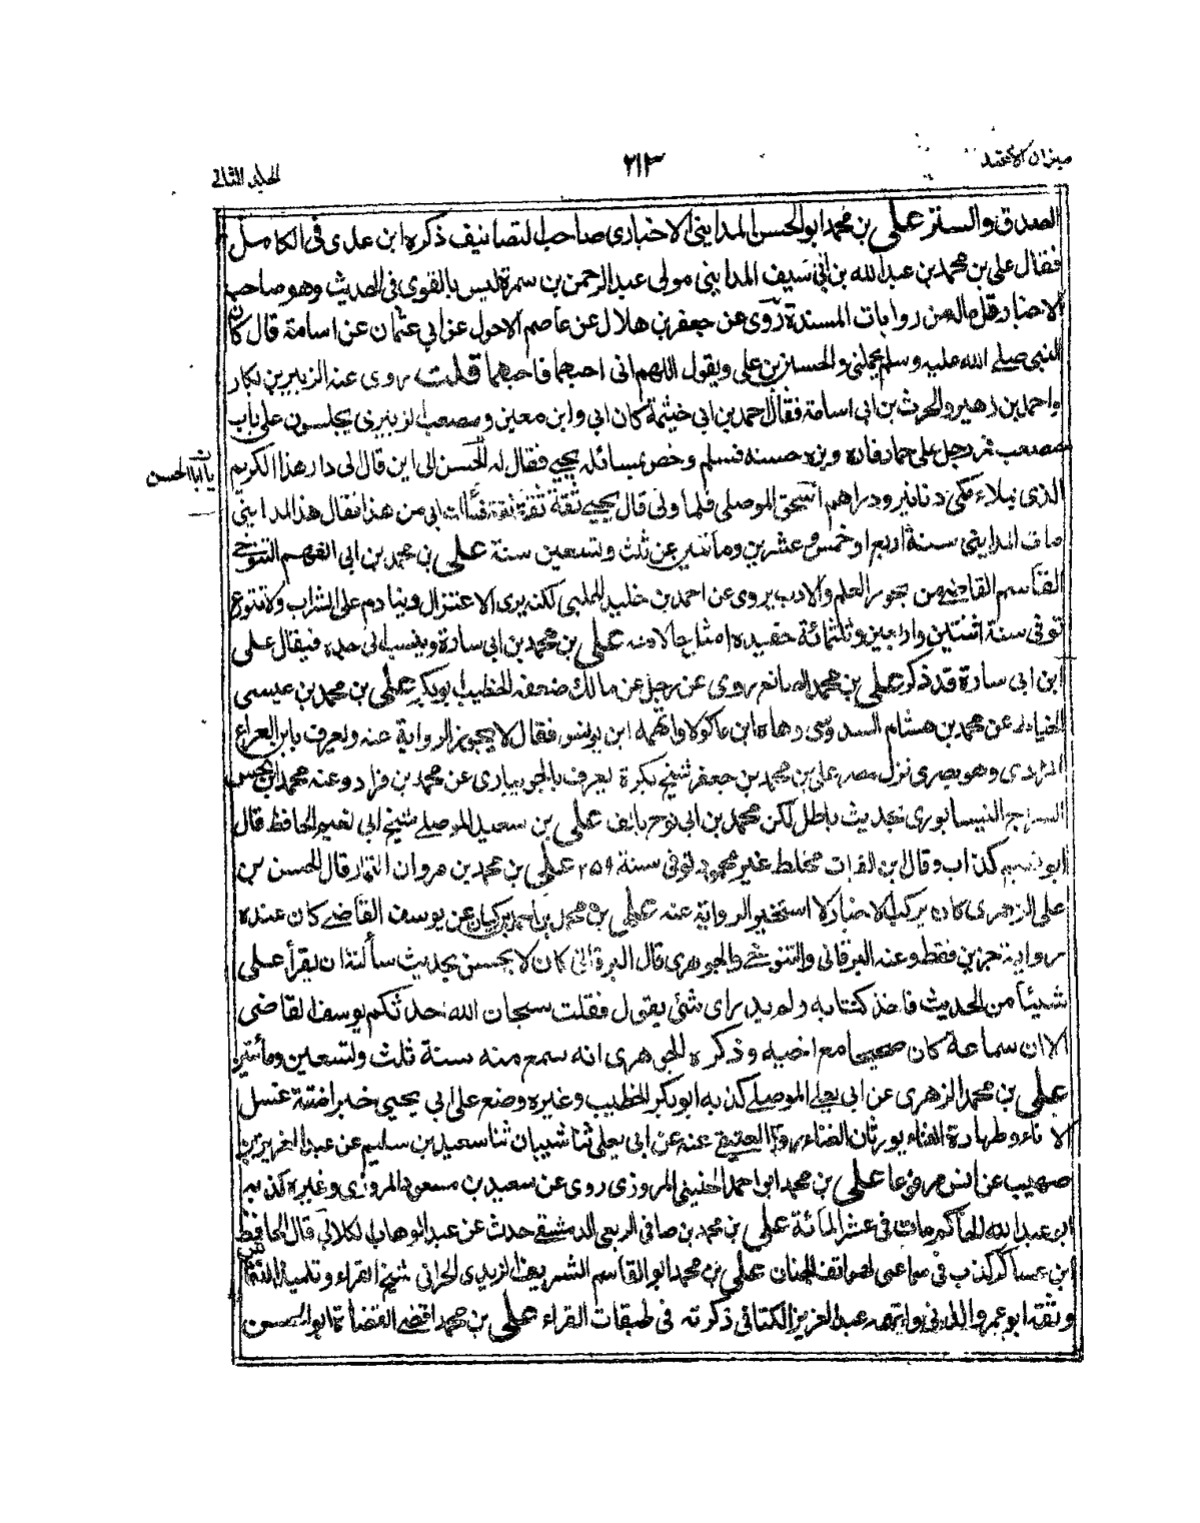 ميزان الاعتد
٢١٣
الجلد الثاني
الصدق والستر علي بن محمد ابو الحسن المدايني الاخباري صاحب التصانيف ذكره ابن عدى فى الكامل
فقال علي بن محمد بن عبد الله بن ابي سيف المدايني مولى عبد الرحمن بن سمرة ليس بالقوى فى الحديث وهو صاحب
الاخبار قل ماله من روايات المسندة روى عن جعفر بن هلال عن عاصم الاحول عن ابي عثمان عن اسامة قال كان
النبى صلے الله عليه وسلم يحملنى والحسين بن على ويقول اللهم انى احبهما فاحبهما قلت روى عنه الزبير بن بكار
واحمد بن زهير والحرث بن ابى اسامة فقال احمد بن ابى خيثمة كان ابى وابن معين ومصعب الزبيرى يجلسون على باب
مصعب فمر رجل على حمار فاره وبزه حسنة فسلم وخص بمسائله يحيے فقال له يا ابا الحسن الى اين قال لى دار هذا الكريم
الذى يملاء كمى دنانير ودراهم اسحق الموصلى فلما ولى قال يحيے ثقة ثقة ثقة فسألت ابى من هذا فقال هذا المدايني
مات المدايني سنة اربع او خمس وعشرين ومأتين عن ثلث وتسعين سنة علي بن محمد بن ابى الفهم التنوخے
القاسم القاضے من بحور العلم والادب يروى عن احمد بن خليد الحلبى لكنه يرى الاعتزال وينادم على الشراب ولا يتورع
توفى سنة اثنتين واربعين وثلثمائة حفيده امثل حالا منه علي بن محمد بن ابى سارة وينسب الى جده فيقال على
ابن ابى سارة قد ذكر علي بن محمد الصائغ روى عن رجل عن مالك ضعفه الخطيب ابو بكر علي بن محمد بن عيسى
الخياط عن محمد بن هشام السدوسى وهاه ابن ماكولا واتهمه ابن يونس فقال لا يجوز الرواية عنه ويعرف بابن العراء
المرادى وهو بصرى نزل مصر علي بن محمد بن جعفر شيخ بكرة يعرف بالجويبارى عن محمد بن فراد وعنه محمد بن الحسن
السراج النيسابورى بحديث باطل لكن محمد بن ابى نوح بايف علي بن سعيد الموصلے شيخ ابى نعيم الحافظ قال
ابو نعيم كذاب وقال بن الفرات مخلط غير محمود توفى سنة ٢٥٩ علي بن محمد بن مروان التمار قال الحسن بن
على الزهرى كان يركب الاخبار لا استخير الرواية عنه علي بن محمد بن احمد بن كيسان عن يوسف القاضے كان عنده
رواية جزئين فقط وعنه البرقانى والتنوخے والجوهرى قال البرقانى كان لا يحسن يحدث سألته ان يقرأ على
شيئا من الحديث فاخذ كتابه ولم يدر اى شئ يقول فقلت سبحان الله حدثكم يوسف القاضى
الا ان سماعه كان صحيحا مع اخيه وذكره الجوهرى انه سمع منه سنة ثلث وتسعين ومأتين
علي بن محمد الزهرى عن ابى يعلے الموصلے كذبه ابو بكر الخطيب وغيره وضع على ابى يحيى خبرا فتنة غسل
الاناء وطهارة الفناء يورثان الغناء رواه العتيقے عنه عن ابى يعلى ثنا شيبان ثنا سعيد بن سليم عن عبد العزيز بن
صهيب عن انس مرفوعا علي بن محمد ابو احمد الحنينى المروزى روى عن سعيد بن مسعود المروزى وغيره كذبه
ابو عبد الله الحاكم مات فى عشر المائة علي بن محمد بن صافى الربعى الدمشقے حدث عن عبد الوهاب الكلابى قال الحافظ
ابن عساكر كذب فى سماعى لهواتف الجنان علي بن محمد ابو القاسم الشريف الزيدى الحرانى شيخ القراء وتلميذ النقاش
وثقه ابو عمرو الدانى واتهمه عبد العزيز الكتانى ذكرته فى طبقات القراء علي بن محمد اقضے القضاة ابو الحسن
يا ابا الحسن